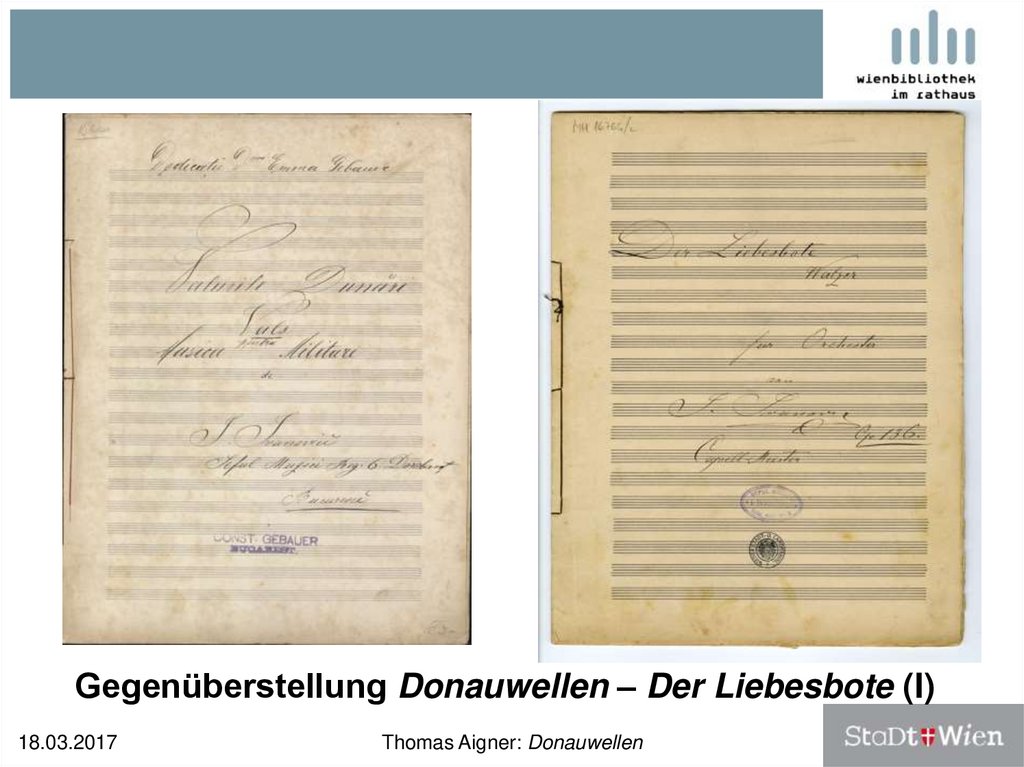 wienbibliothek
im rathaus
Dedicatie Dnei Emma Gebauer
Valurile Dunării
Vals
pentru
Musica Militare
de
I. Ivanovici
Reg. 6
CONST. GEBAUER
BUCAREST.
MH 16764/c
Der Liebesbote
Walzer
für Orchester
von
J. Ivanovici
Op 136.
Capell-Meister
Gegenüberstellung Donauwellen – Der Liebesbote (I)
18.03.2017
Thomas Aigner: Donauwellen
StaDt Wien